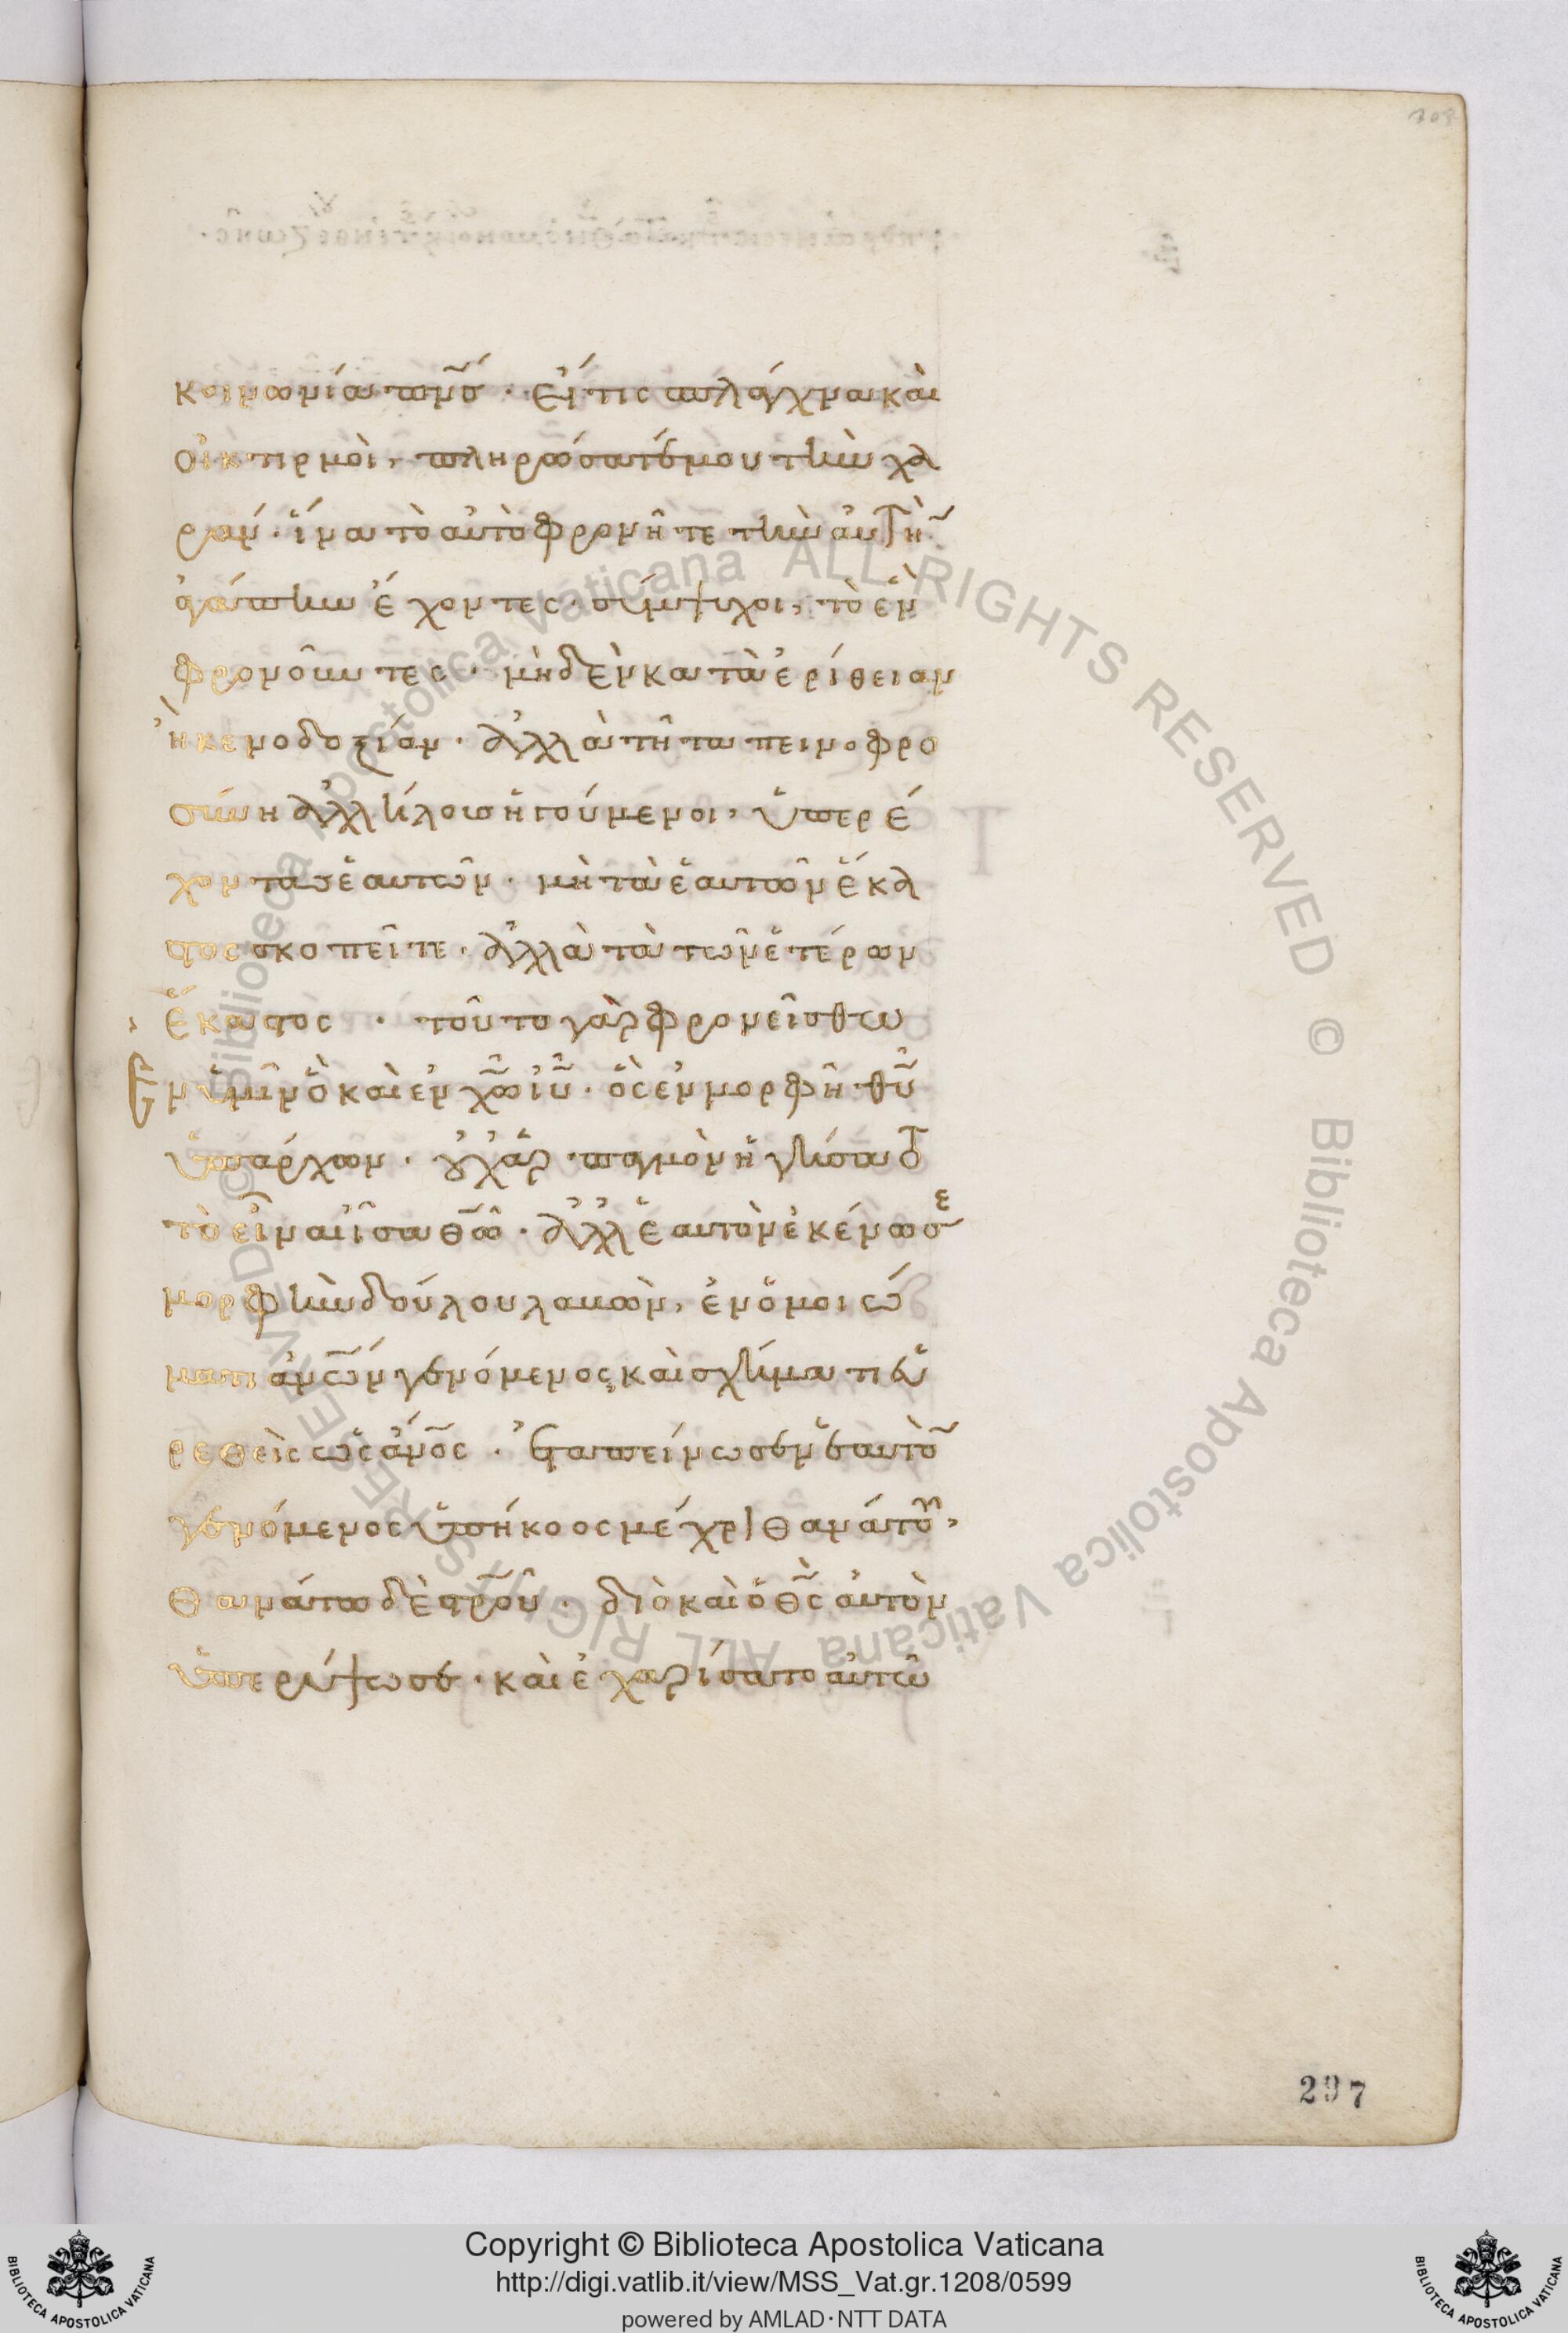 κοινωνία πν̅ς· εἴ τις σπλάγχνα καὶ
οἰκτιρμοὶ, πληρώσατέ μου τὴν χα
ράν· ἵνα τὸ αὐτὸ φρονῆτε τὴν αὐτὴ̅
ἀγάπην ἔχοντες· σύμψυχοι, τὸ ἓν
φρονοῦντες· μηδὲν κατὰ ἐρίθειαν
ἢ κενοδοξίαν· ἀλλὰ τῆ ταπεινοφρο
σύνη ἀλλήλους ἡγούμενοι, ὑπερέ
χοντας ἑαυτῶν· μὴ τὰ ἑαυτῶν ἕκα
στος σκοπεῖτε· ἀλλὰ τὰ τῶν ἑτέρων
ἕκαστος · τοῦτο γὰρ φρονείσθω
ἐν ὑμῖν ὃ καὶ ἐν χ̅ω̅ ι̅υ̅· ὃς ἐν μορφῆ θ̅υ̅
ὑπάρχων· οὐχ ἁρπαγμὸν ἡγήσατο
τὸ εἶναι ἶσα θ̅ω̅· ἀλλ' ἑαυτὸν ἐκένωσε
μορφὴν δούλου λαβὼν, ἐν ὁμοιώ
ματι ἀν̅ω̅ν γενόμενος, καὶ σχήματι εὑ
ρεθεὶς ὡς ἄν̅ο̅ς· ἐταπείνωσεν ἑαυτὸ̅
γενόμενος ὑπήκοος μέχρι θανάτου,
θανάτου δὲ στ̅ρ̅οῦ· διὸ καὶ ὁ θ̅ς̅ αὐτὸν
ὑπερύψωσε· καὶ ἐχαρίσατο αὐτῶ
297
Copyright © Biblioteca Apostolica Vaticana
http://digi.vatlib.it/view/MSS_Vat.gr.1208/0599
powered by AMLAD·NTT DATA
BIBLIOTECA APOSTOLICA VATICANA
BIBLIOTECA APOSTOLICA VATICANA
© Biblioteca Apostolica Vaticana ALL RIGHTS RESERVED © Biblioteca Apostolica Vaticana ALL RIGHTS RESERVED